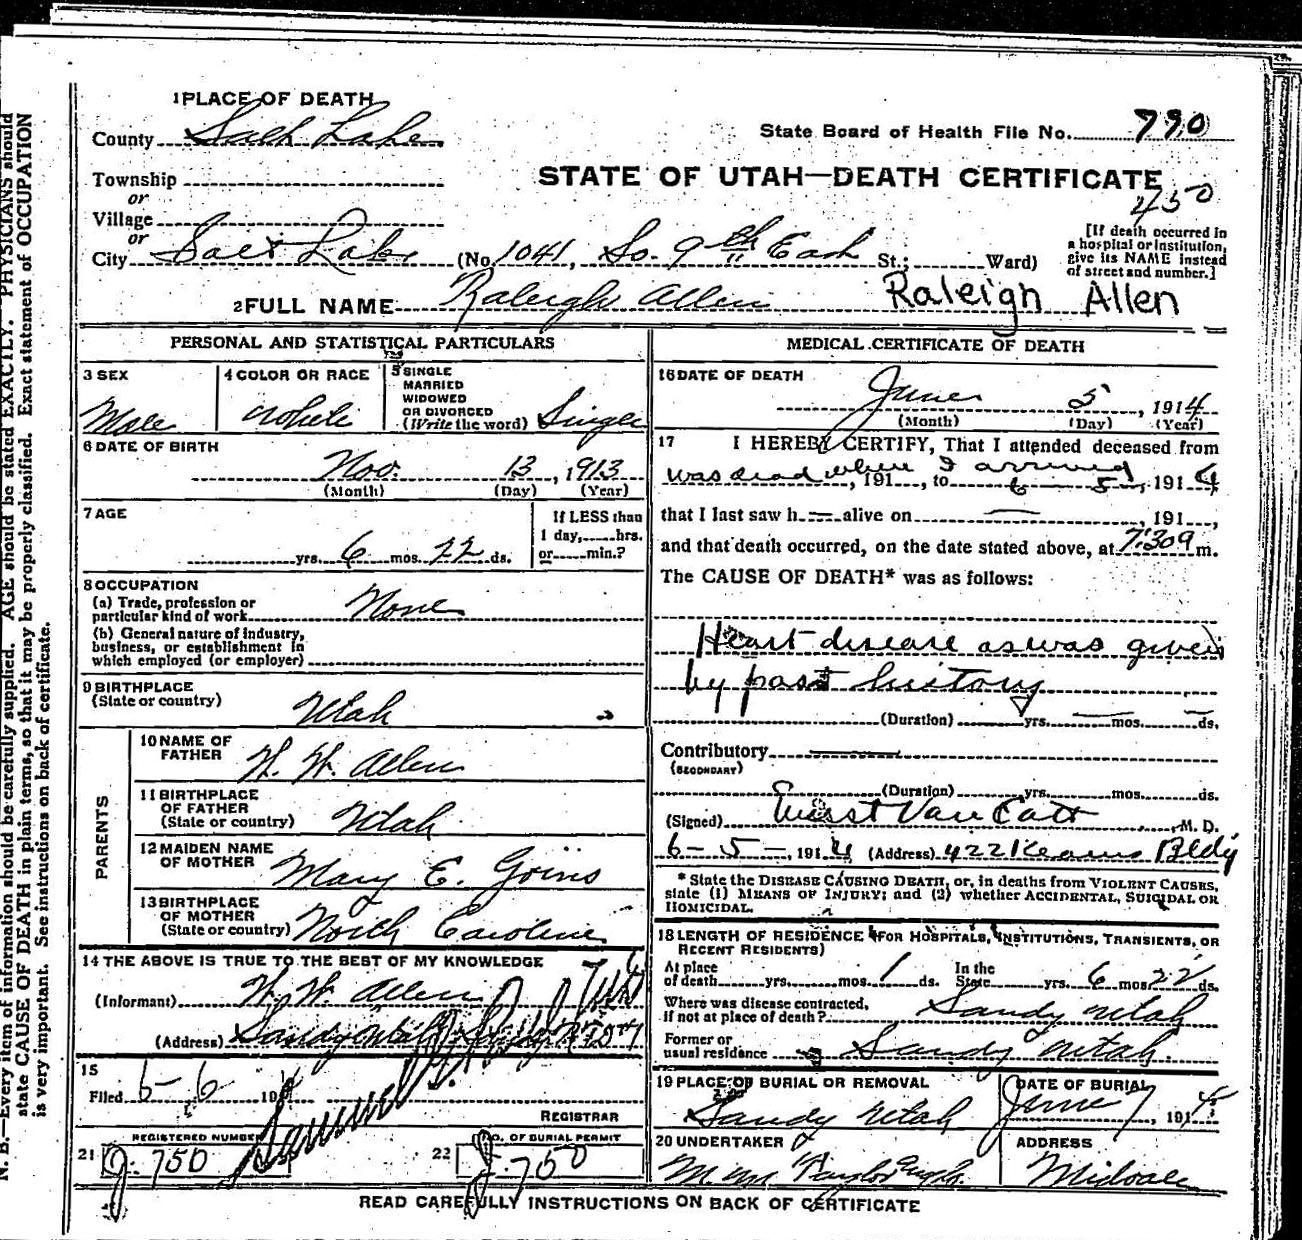 1 PLACE OF DEATH
County Salt Lake
State Board of Health File No. 790
Township
or
Village
or
STATE OF UTAH—DEATH CERTIFICATE
450
City Salt Lake (No. 1041, So. 9th East St.; Ward)
[If death occurred in
a hospital or institution,
give its NAME instead
of street and number.]
2 FULL NAME Raleigh Allen Raleigh Allen
PERSONAL AND STATISTICAL PARTICULARS
3 SEX
Male
4 COLOR OR RACE
White
5 SINGLE
MARRIED
WIDOWED
OR DIVORCED
(Write the word) Single
6 DATE OF BIRTH
Nov. 13, 1913
(Month) (Day) (Year)
7 AGE
yrs. 6 mos. 22 ds.
If LESS than
1 day, hrs.
or min.?
8 OCCUPATION
(a) Trade, profession or
particular kind of work None
(b) General nature of industry,
business, or establishment in
which employed (or employer)
9 BIRTHPLACE
(State or country) Utah
PARENTS
10 NAME OF
FATHER W. W. Allen
11 BIRTHPLACE
OF FATHER
(State or country) Utah
12 MAIDEN NAME
OF MOTHER Mary E. Goins
13 BIRTHPLACE
OF MOTHER
(State or country) North Carolina
14 THE ABOVE IS TRUE TO THE BEST OF MY KNOWLEDGE
(Informant) W. W. Allen
(Address) Sandy Utah
15
Filed 6-6 191
Samuel G.
REGISTRAR
21 REGISTERED NUMBER
J. 750
22 NO. OF BURIAL PERMIT
J. 750
MEDICAL CERTIFICATE OF DEATH
16 DATE OF DEATH
June 5, 1914
(Month) (Day) (Year)
17 I HEREBY CERTIFY, That I attended deceased from
was dead when I arrived, 191, to 6-5, 1914
that I last saw h alive on , 191,
and that death occurred, on the date stated above, at 7:30 a m.
The CAUSE OF DEATH* was as follows:
Heart disease as was given
by past history
(Duration) yrs. mos. ds.
Contributory
(SECONDARY)
(Duration) yrs. mos. ds.
(Signed) Van Cott, M. D.
6-5-, 1914 (Address) 422 Kearns Bldg
* State the DISEASE CAUSING DEATH, or, in deaths from VIOLENT CAUSES,
state (1) MEANS OF INJURY; and (2) whether ACCIDENTAL, SUICIDAL OR
HOMICIDAL.
18 LENGTH OF RESIDENCE (FOR HOSPITALS, INSTITUTIONS, TRANSIENTS, OR
RECENT RESIDENTS)
At place
of death yrs. mos. 1 ds. In the
State yrs. 6 mos 22 ds.
Where was disease contracted,
if not at place of death? Sandy Utah
Former or
usual residence Sandy Utah.
19 PLACE OF BURIAL OR REMOVAL
Sandy Utah
DATE OF BURIAL
June 7, 1914
20 UNDERTAKER
ADDRESS
Midvale
READ CAREFULLY INSTRUCTIONS ON BACK OF CERTIFICATE
N. B.—Every item of information should be carefully supplied. AGE should be stated EXACTLY. PHYSICIANS should
state CAUSE OF DEATH in plain terms, so that it may be properly classified. Exact statement of OCCUPATION
is very important. See instructions on back of certificate.